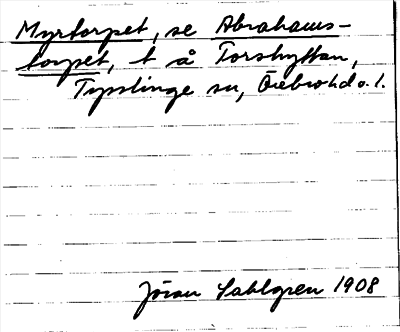 Myrtorpet, se Abrahams-
torpet, t å Torshyttan,
Tysslinge sn, Örebro hd o. l.
Jöran Sahlgren 1908